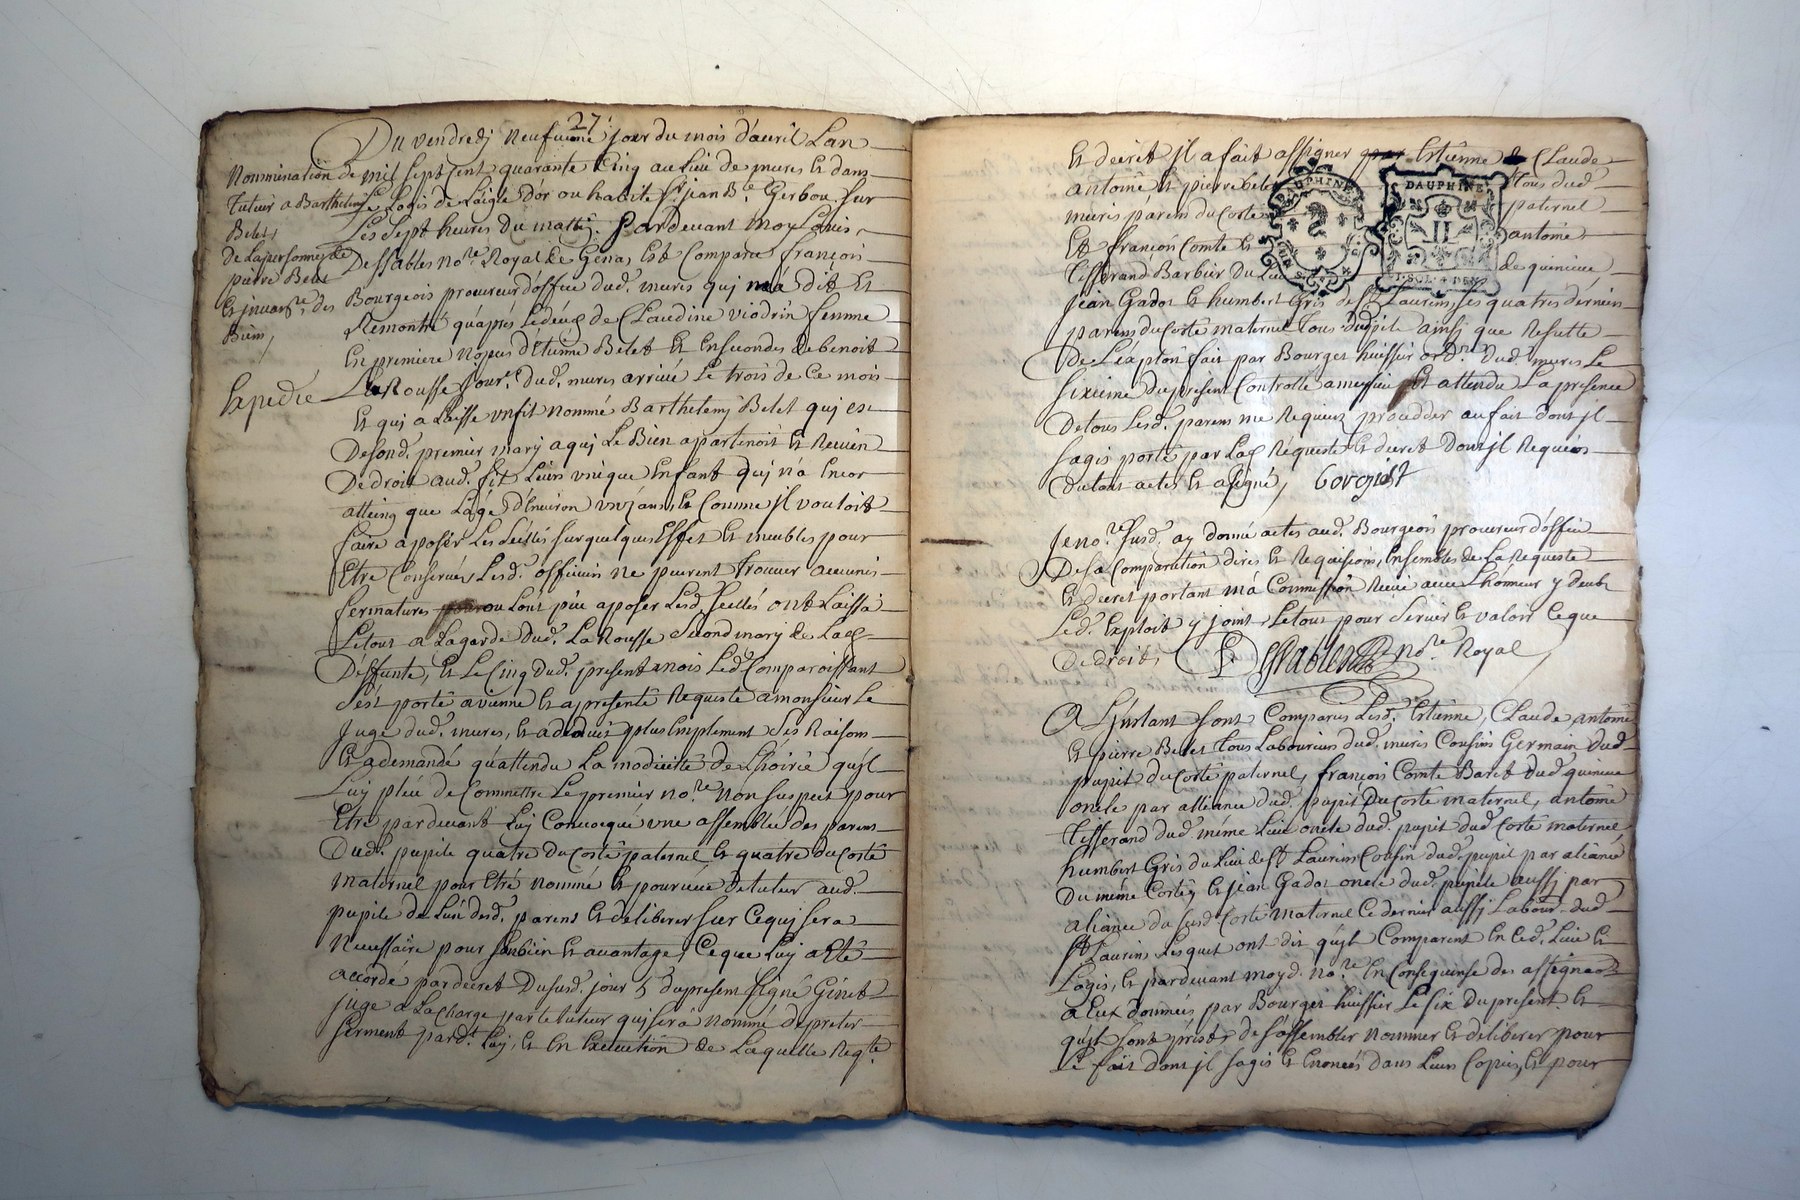 27
Du vendredj neufuieme jour du mois d'auril Lan
mil sept Cent quarante Cinq au lieu de mures & dans
Le Logis de Laigle d'or ou habite Sr. jean Bte. Gerbou. sur
Les sept heures du mattin. Pardeuant moy Louis
Dessables nore. Royal de Genas Est Comparu françois
Bourgeois procureur d'office dud. mures qui m'a dit Et
Remontré qu'aprés Le décés de Claudine viodrin femme
En premiere nopces d'Etienne Belet Et En secondes de benoit
La Rousse jour. dud. mures arriué Le trois de Ce mois
Et qui a Laissé un fit nommé Barthelemj Belet qui est
De fond. premier marj a qui Le Bien apartenoit Et Reuien
De droit aud. fit Leur vnique Enfant qui n'a Encor
atteing que L'age d'Enuiron vnz ans, Et Comme jl vouloit
faire aposér Les scéllés sur quelques Effet Et meubles pour
Etre Conserués Lesd. officiers ne peuuent trouuer aucunes
fermatures ou Lont puie aposer Lesd. scellés ont Laissá
Le tout a La garde dud. La Rousse second marj de Lad.
Déffunte, Et Le Cinq dud. present mois Led. Comparoissant
s'est porté a vienne Et a presenté Requeste a monsieur Le
juge dud. mures, Et a deduit plus Emplement ses Raisons
Et a demandé qu'attendu La modicité de L'hoirie qu'jl
Luy pleu de Commettre Le premier nore. non suspect pour
Etre pardeuant Luy Conuoqué vne assemblée des parens
Dud. pupile quatre du Corté paternel Et quatre du Corté
maternel pour Etré nommé Et pourueue de tuteur aud.
pupile de L'un desd. parens Et deliberer sur Ce qui sera
Necessaire pour son bien Et auantage, Ce que Luy a Eté
accordé par decret du susd. jour 5 du present signé Ginet
juge a La charge par le tuteur qui sera nommé de preter
serment pardt. Luj, Et En Execution de Laquelle Reqte.
Nommination de
tuteur a Barthelemy
Belet,
de La personne de
pierre Belet
Et jnuare. des
Biens,
Expedié
Et decret jl a fait assigner Estienne Claude
antoine Et pierre belet tous dud.
mures parens du Corté paternel
Et françois Comte antoine
Tisserand Barbier du Lieu de quinieue
DAUPHINE
DAUPHINE
II
jean Gados Et humbert Gris de St Laurens, Les quatres derniers
parens du Corté maternel tous dud. pile ainsj que Resulte
De L'éxploit fait par Bourges huissier ordre. dud. mures Le
sixieme du present Controllé a mesieu Et attendu La presence
De tous Lesd. parens me Requiert procedder au fait dont jl
s'agis porté par Lad. Requeste Et decret dont jl Requiers
du tout actes Et a signé, bovrgiost
Je nore. susd. ay donné actes aud. Bourgeois procureur d'office
De sa Comparution dires Et Requisions, Ensembles de La Requeste
Et decret portant má Commission Receüe auec L'honneur y deub
Led. Exploit y joint, Le tout pour seruir Et valoir Ce que
De droits Dessables nore. Royal
A L'jnstant sont Comparus Lesd. Estienne, Claude, antoine
Et pierre Belet tous Laboureurs dud. mures Cousins Germain dud.
pupit du Corté paternel, françois Comte Baret dud. quinieue
oncle par alliance dud. pupit Du Corté maternel, antoine
Tisserand dud. méme Lieu oncle dud. pupit dud. Corté maternel
humbert Gris du Lieu de St. Laurens Cousin dud. pupit par aliance
Du méme Corté, Et jean Gados oncle dud. pupile aussj par
aliance du susd. Corté maternel Ce dernier aussj Labour. dud.
St. Laurens Lesquels ont dit qu'jls Comparent En Ced. Lieu Et
Logis, Et pardeuant moyd. nore. En Consequense des assignaon
a Eux données par Bourges huissier Le six du present Et
qu'jls sont prests de s'assembler nommer Et deliberer pour
Le fait dont jl s'agis Et Enoncés dans Leurs Copies, Et pour